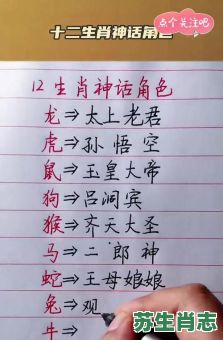 点个关注吧
十二生肖神话角色
12生肖神话角色
龙⇒太上老君
虎⇒孙悟空
鼠⇒玉皇大帝
狗⇒吕洞宾
猴⇒齐天大圣
马⇒二郎神
蛇⇒王母娘娘
兔⇒观
牛⇒
苏生肖志